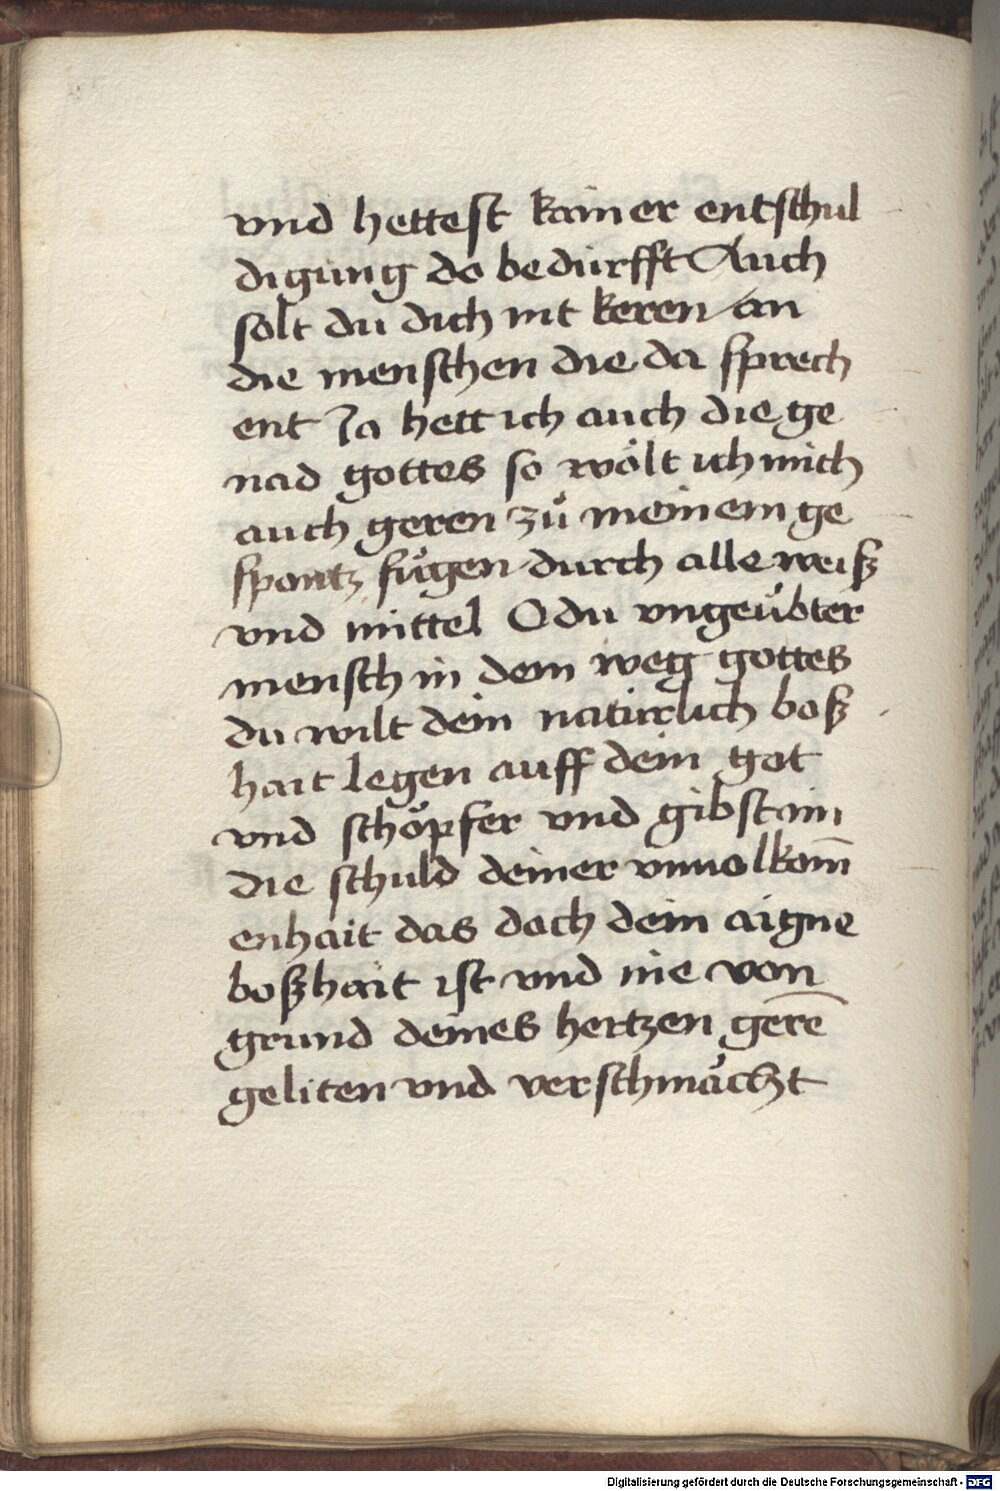 vnd hettest kainer entschul
digung do bedurfft Auch
solt du dich nit keren an
die menschen die da sprech
ent Ja hett ich auch die ge
nad gottes so wölt ich mich
auch geren zů meinem ge
spontz fůgen durch alle weiß
vnd mittel O du vngeübter
mensch in dem weg gottes
du wilt dein natürlich boß
hait legen auff dein got
vnd schöpfer vnd gibst im
die schuld deiner vnuolkom̄
enhait das doch dein aigne
boßhait ist vnd nie von
grund deines hertzen gerē
geliten vnd verschmächt
Digitalisierung gefördert durch die Deutsche Forschungsgemeinschaft - DFG